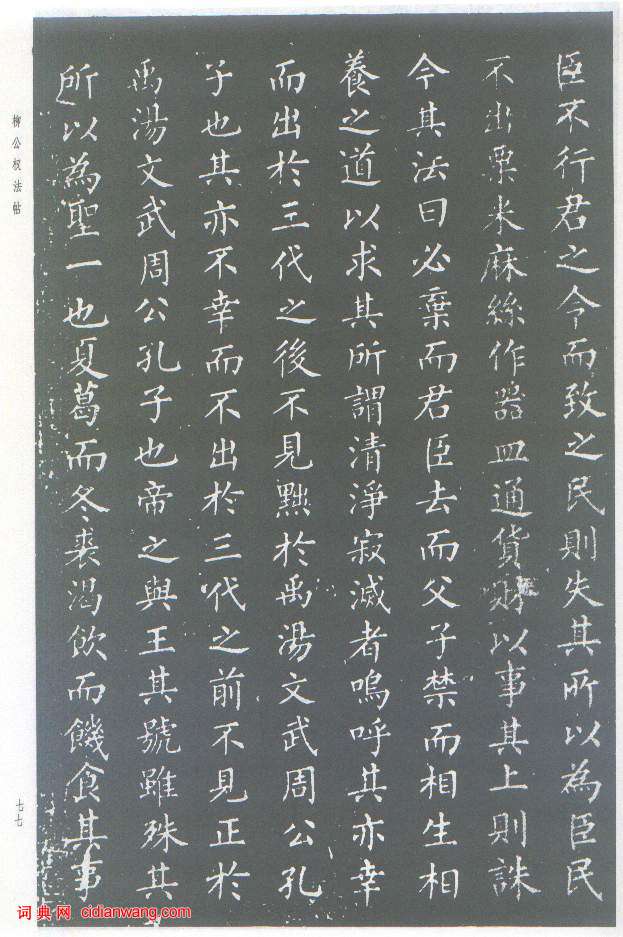 臣不行君之令而致之民則失其所以為臣民
不出粟米麻絲作器皿通貨財以事其上則誅
今其法曰必棄而君臣去而父子禁而相生相
養之道以求其所謂清淨寂滅者嗚呼其亦幸
而出於三代之後不見黜於禹湯文武周公孔
子也其亦不幸而不出於三代之前不見正於
禹湯文武周公孔子也帝之與王其號雖殊其
所以為聖一也夏葛而冬裘渴飲而饑食其事
柳公权法帖
七七
词典网 cidianwang.com